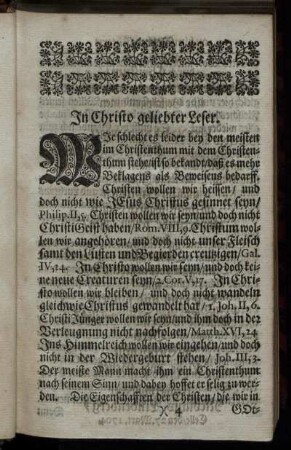 In Christo geliebter Leser.
WJe schlecht es leider bey den meisten
im Christenthum mit dem Christen-
thum stehe/ ist so bekandt/ daß es mehr
Beklagens als Beweisens bedarff.
Christen wollen wir heissen/ und
doch nicht wie JEsus Christus gesinnet seyn/
Philip. II, 5. Christen wollen wir seyn/ und doch nicht
Christi Geist haben/ Rom. VIII, 9. Christum wol-
len wir angehören/ und doch nicht unser Fleisch
samt den Lüsten und Begierden creutzigen/ Gal.
IV, 24. In Christo wollen wir seyn/ und doch kei-
ne neue Creaturen seyn/ 2. Cor. V, 17. In Chri-
sto wollen wir bleiben/ und doch nicht wandeln
gleichwie Christus gewandelt hat/ 1. Joh. II, 6.
Christi Jünger wollen wir seyn/ und ihm doch in der
Verleugnung nicht nachfolgen/ Matth. XVI, 24
Ins Himmelreich wollen wir eingehen/ und doch
nicht in der Wiedergeburt stehen/ Joh. III, 3.
Der meiste Mann macht ihm ein Christenthum
nach seinem Sinn/ und dabey hoffet er selig zu wer-
den. Die Eigenschafften der Christen/ die wir in
X 4